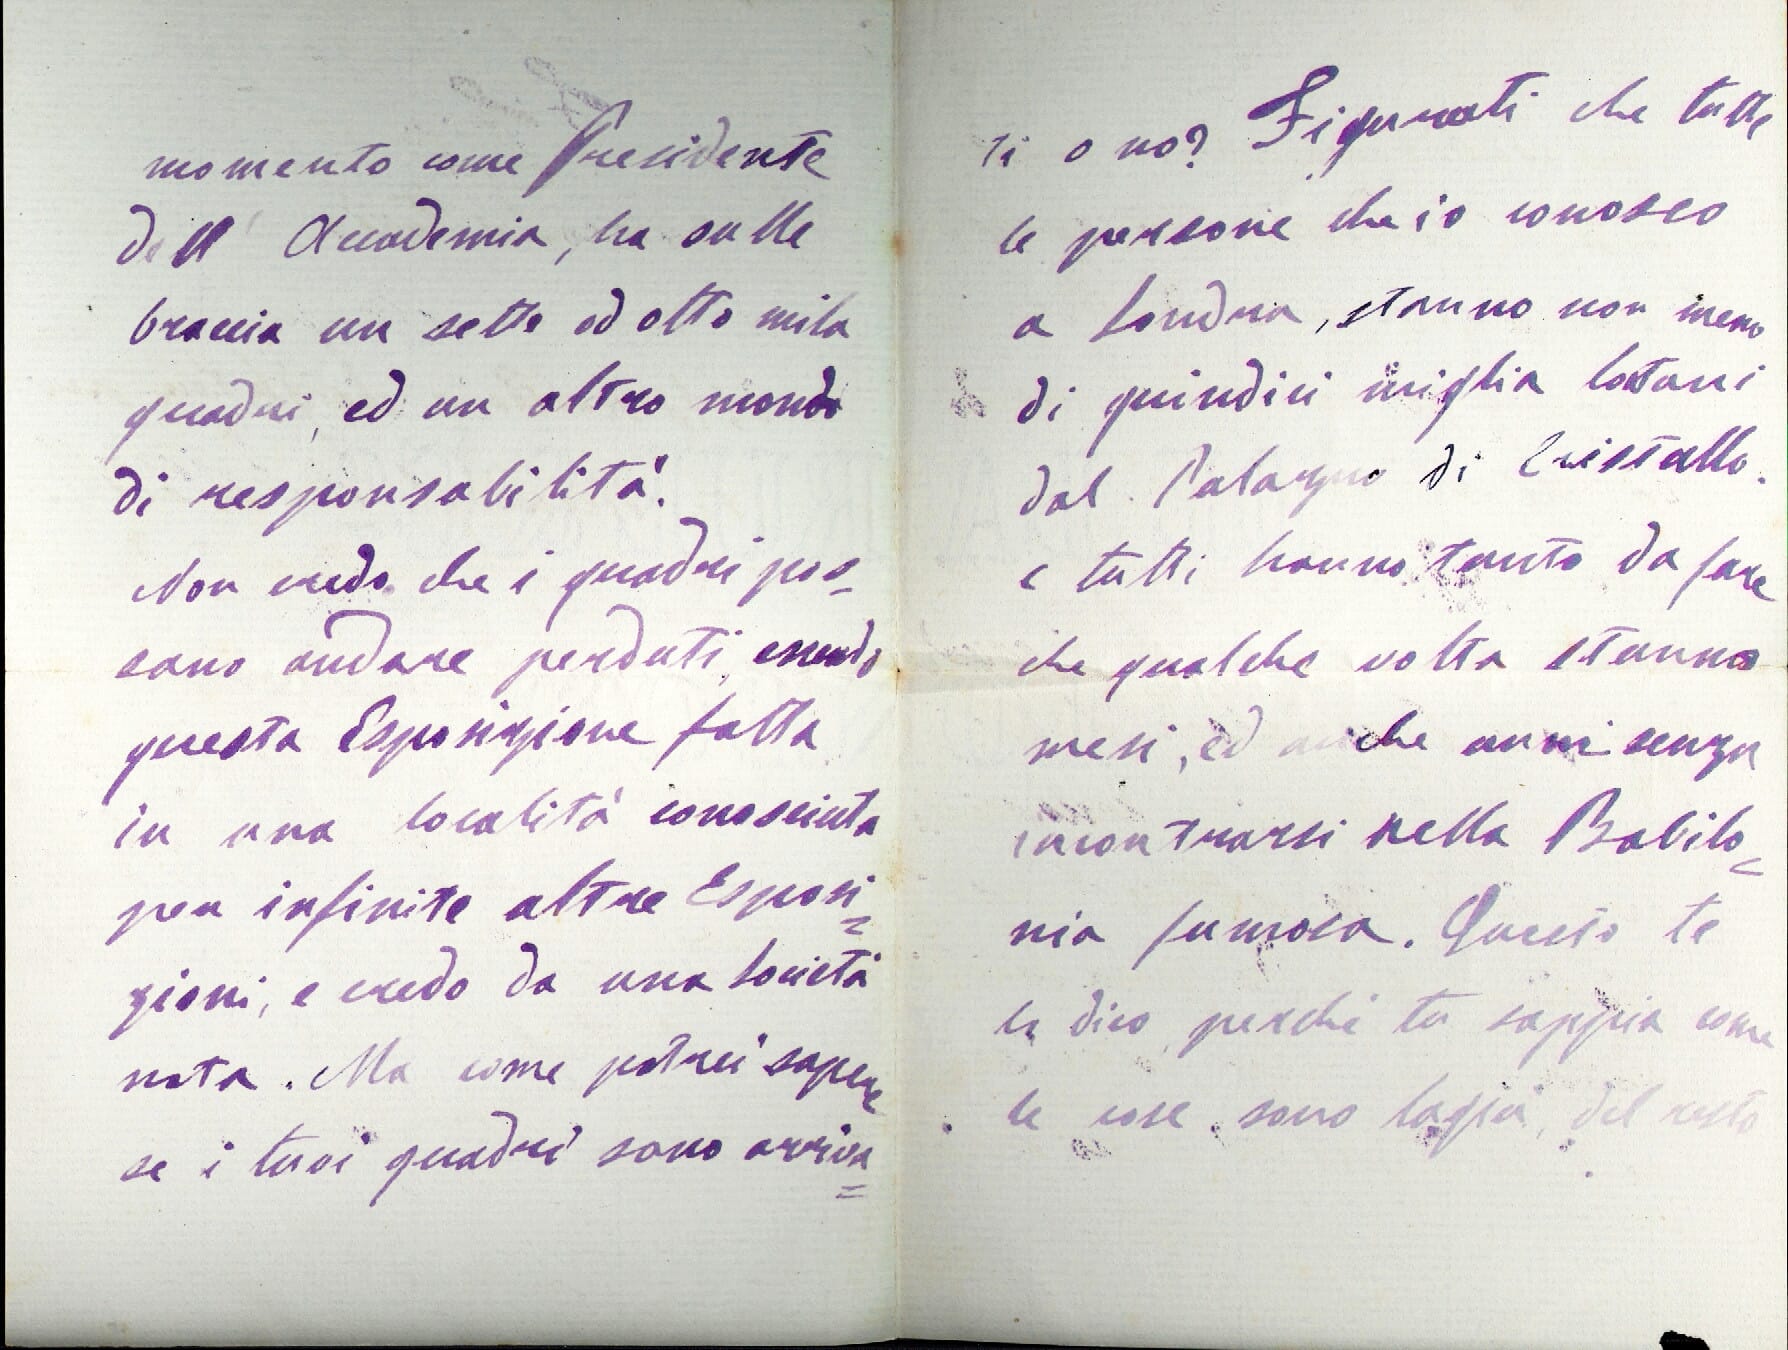 momento come Presidente
dell' Accademia, ha sulle
braccia un sette od otto mila
quadri, ed un altro mondo
di responsabilità.
Non credo che i quadri pos=
sano andare perduti, essendo
questa Esposizione fatta
in una località conosciuta
per infinite altre Esposi=
zioni, e credo da una Società
nota. Ma come potrei sapere
se i tuoi quadri sono arriva=
ti o no? Figurati che tutte
le persone che io conosco
a Londra, stanno non meno
di quindici miglia lontani
dal Palazzo di Cristallo.
e tutti hanno tanto da fare
che qualche volta stanno
mesi, ed anche anni senza
incontrarsi nella Babilo=
nia fumosa. Questo te
lo dico perchè tu sappia come
le cose sono laggiù, del resto